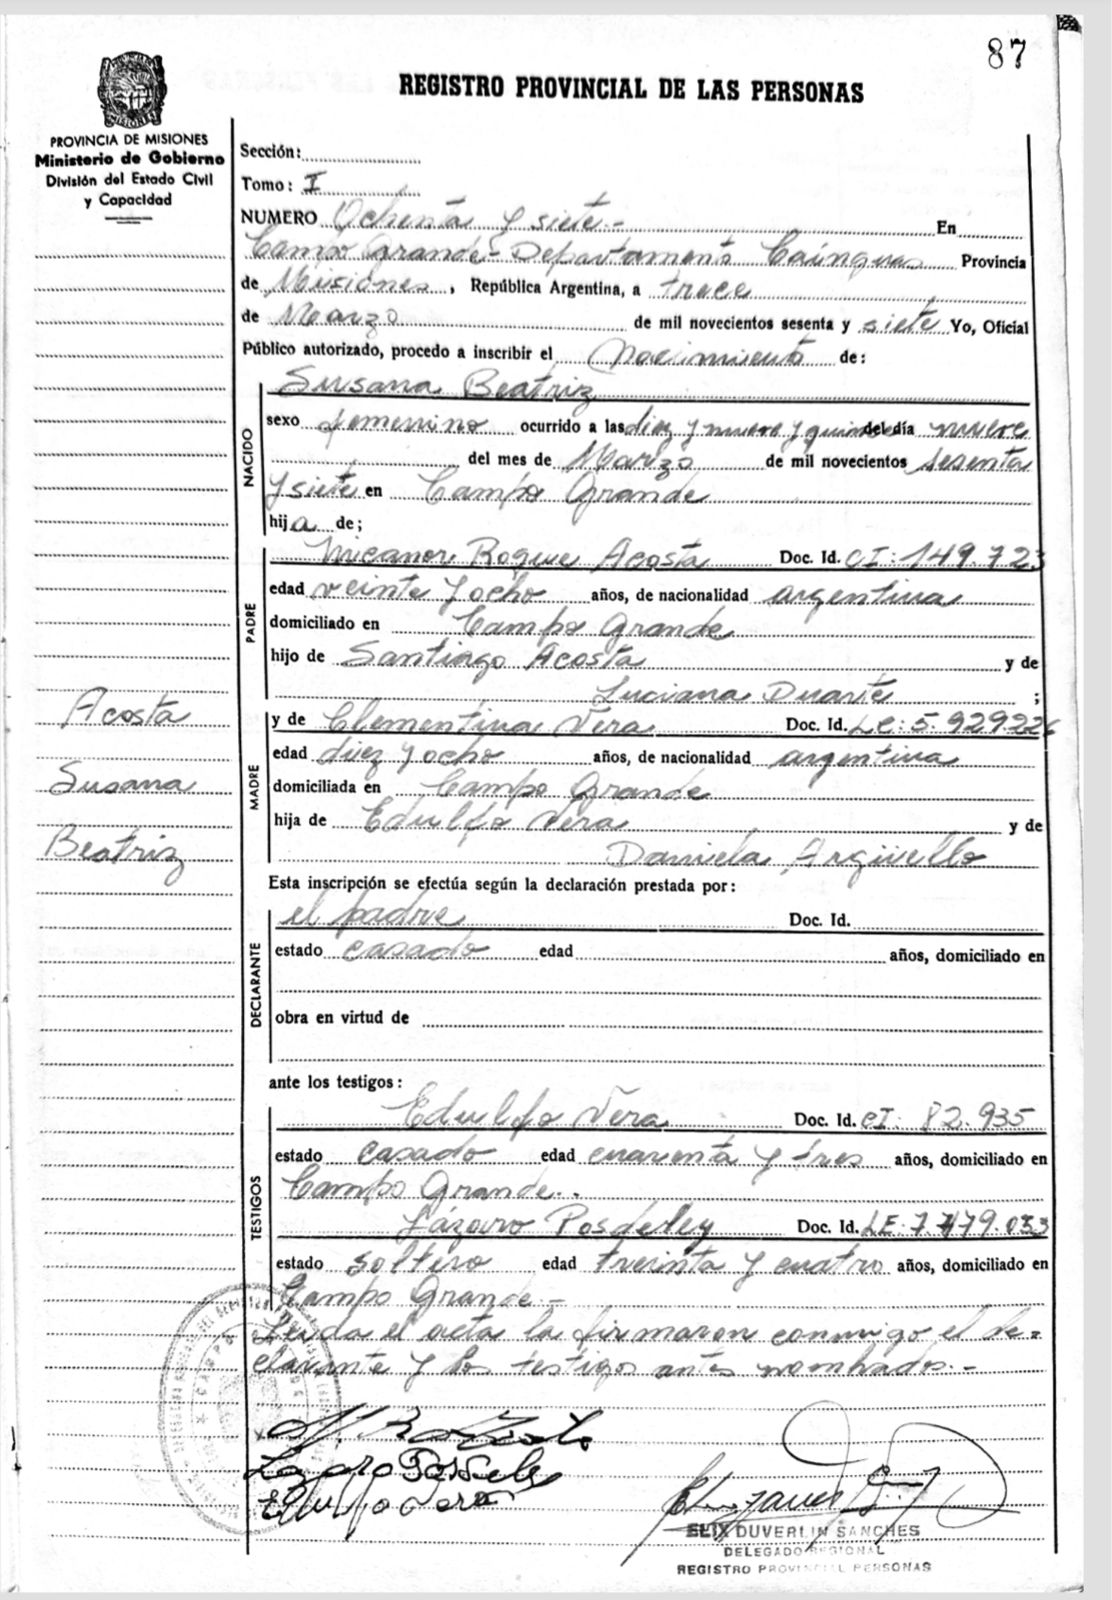 87
REGISTRO PROVINCIAL DE LAS PERSONAS
PROVINCIA DE MISIONES
Ministerio de Gobierno
División del Estado Civil
y Capacidad
Sección:
Tomo: I
NUMERO Ochenta y siete.- En
Campo Grande- Departamento Caínguas Provincia
de Misiones, República Argentina, a trece
de Marzo de mil novecientos sesenta y siete Yo, Oficial
Público autorizado, procedo a inscribir el Nacimiento de:
NACIDO
Susana Beatriz
sexo femenino ocurrido a las diez y nueve y quince del día nueve
del mes de Marzo de mil novecientos sesenta
y siete en Campo Grande
hija de;
PADRE
Nicanor Roque Acosta Doc. Id. CI: 149.723
edad veinte y ocho años, de nacionalidad argentina
domiciliado en Campo Grande
hijo de Santiago Acosta y de
Luciana Duarte ;
Acosta
Susana
Beatriz
MADRE
y de Clementina Vera Doc. Id. LC: 5.929.226
edad diez y ocho años, de nacionalidad argentina
domiciliada en Campo Grande
hija de Edulfo Vera y de
Daniela Argüello
Esta inscripción se efectúa según la declaración prestada por:
DECLARANTE
el padre Doc. Id.
estado casado edad años, domiciliado en
obra en virtud de
ante los testigos:
TESTIGOS
Edulfo Vera Doc. Id. CI: 82.935
estado casado edad cuarenta y tres años, domiciliado en
Campo Grande..
Lázaro Posdeley Doc. Id. LE. 033
estado soltero edad treinta y cuatro años, domiciliado en
Campo Grande-
Leída el acta la firmaron conmigo el de-
clarante y los testigos antes nombrados.-
Edulfo Vera
ELIX DUVERLIN SANCHES
DELEGADO REGIONAL
REGISTRO PROVINCIAL PERSONAS